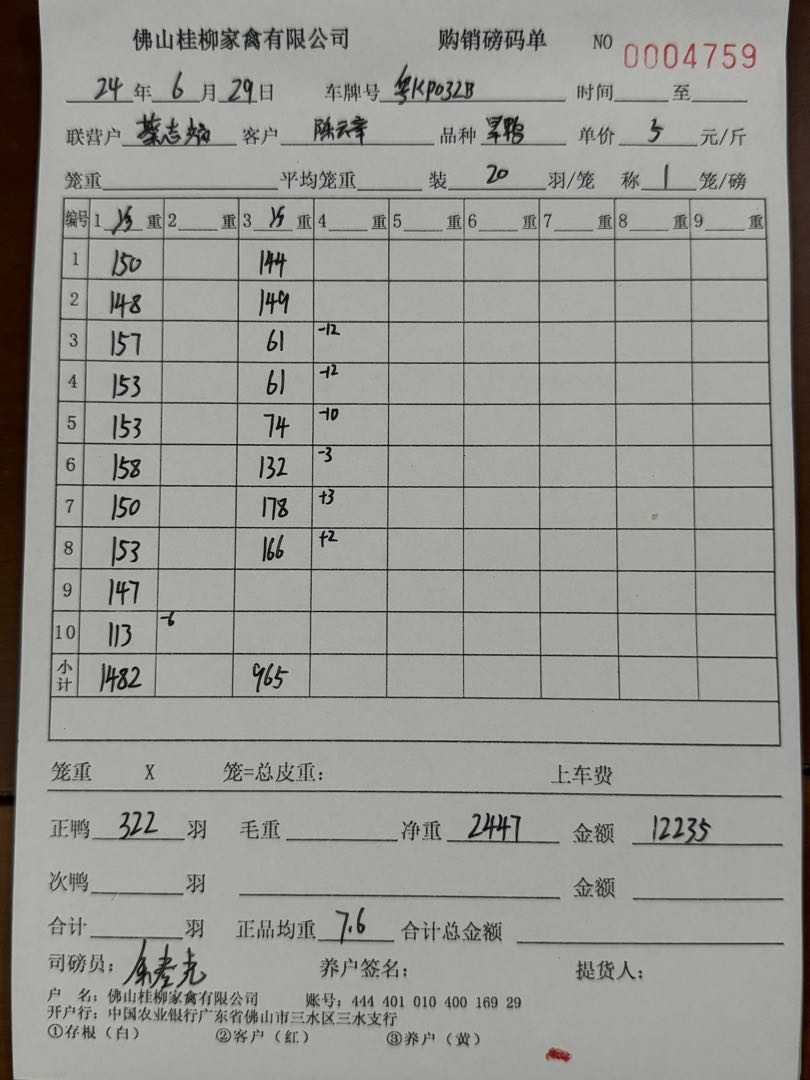 佛山桂柳家禽有限公司 购销磅码单 NO 0004759
24 年 6 月 29 日 车牌号 粤KP032B 时间 至
联营户 蔡志 客户 陈云章 品种 旱鸭 单价 5 元/斤
笼重 平均笼重 装 20 羽/笼 称 1 笼/磅
编号 1 重 2 重 3 重 4 重 5 重 6 重 7 重 8 重 9 重
1 150 144
2 148 149
3 157 61 -12
4 153 61 -12
5 153 74 -10
6 158 132 -3
7 150 178 +3
8 153 166 +2
9 147
10 113 -6
小计 1482 965
笼重 X 笼=总皮重: 上车费
正鸭 322 羽 毛重 净重 2447 金额 12235
次鸭 羽 金额
合计 羽 正品均重 7.6 合计总金额
司磅员: 养户签名: 提货人:
户 名: 佛山桂柳家禽有限公司 账号: 444 401 010 400 169 29
开户行: 中国农业银行广东省佛山市三水区三水支行
①存根(白) ②客户(红) ③养户(黄)